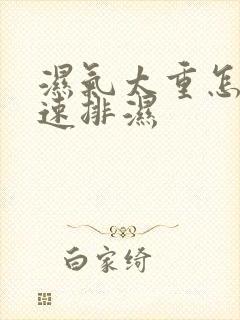 濕氣太重怎
速排濕
白家绮